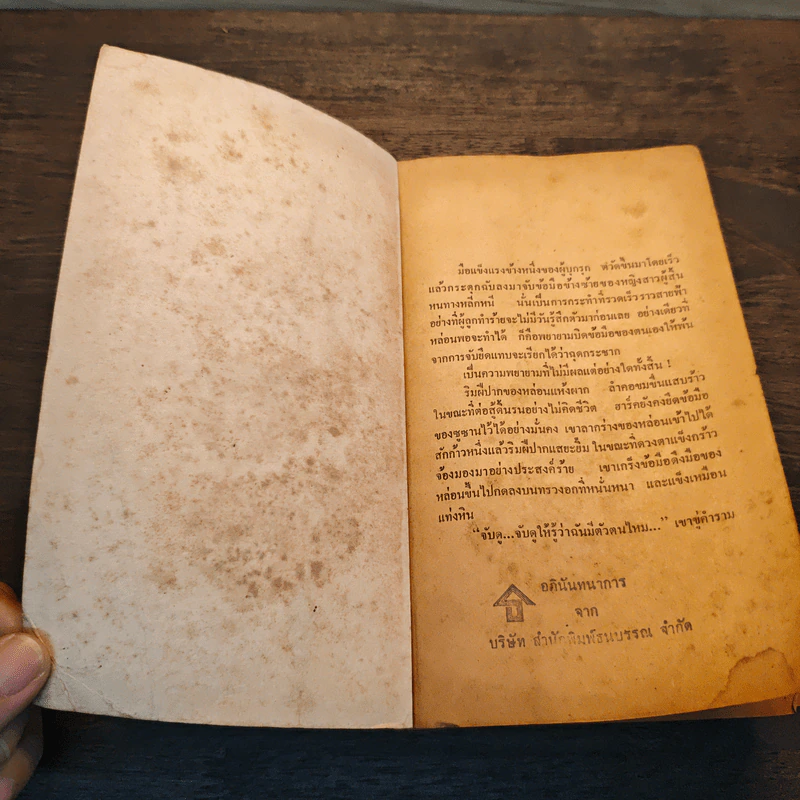 มือแข็งแรงข้างหนึ่งของผู้บุกรุก ตวัดขึ้นมาโดยเร็ว
แล้วกระตุกฉับลงมาจับข้อมือข้างซ้ายของหญิงสาวผู้สิ้น
หนทางหลีกหนี นั่นเป็นการกระทำที่รวดเร็วราวสายฟ้า
อย่างที่ผู้ถูกทำร้ายจะไม่มีวันรู้สึกตัวมาก่อนเลย อย่างเดียวที่
หล่อนพอจะทำได้ ก็คือพยายามบิดข้อมือของตนเองให้พ้น
จากการจับยึดแทบจะเรียกได้ว่าฉุดกระชาก
เป็นความพยายามที่ไม่มีผลแต่อย่างใดทั้งสิ้น !
ริมฝีปากของหล่อนแห้งผาก ลำคอขมขื่นแสบร้าว
ในขณะที่ต่อสู้ดิ้นรนอย่างไม่คิดชีวิต ฮาร์คยังคงยึดข้อมือ
ของซูซานไว้ได้อย่างมั่นคง เขาลากร่างของหล่อนเข้าไปใต้
สักก้าวหนึ่งแล้วริมฝีปากแสยะยิ้ม ในขณะที่ดวงตาแข็งกร้าว
จ้องมองมาอย่างประสงค์ร้าย เขาเกร็งข้อมือดึงมือของ
หล่อนขึ้นไปกดลงบนทรวงอกที่หนั่นหนา และแข็งเหมือน
แท่งหิน
“จับดู...จับดูให้รู้ว่าฉันมีตัวตนไหม...” เขาขู่คำราม
อภินันทนาการ
จาก
บริษัท สำนักพิมพ์ธนบรรณ จำกัด